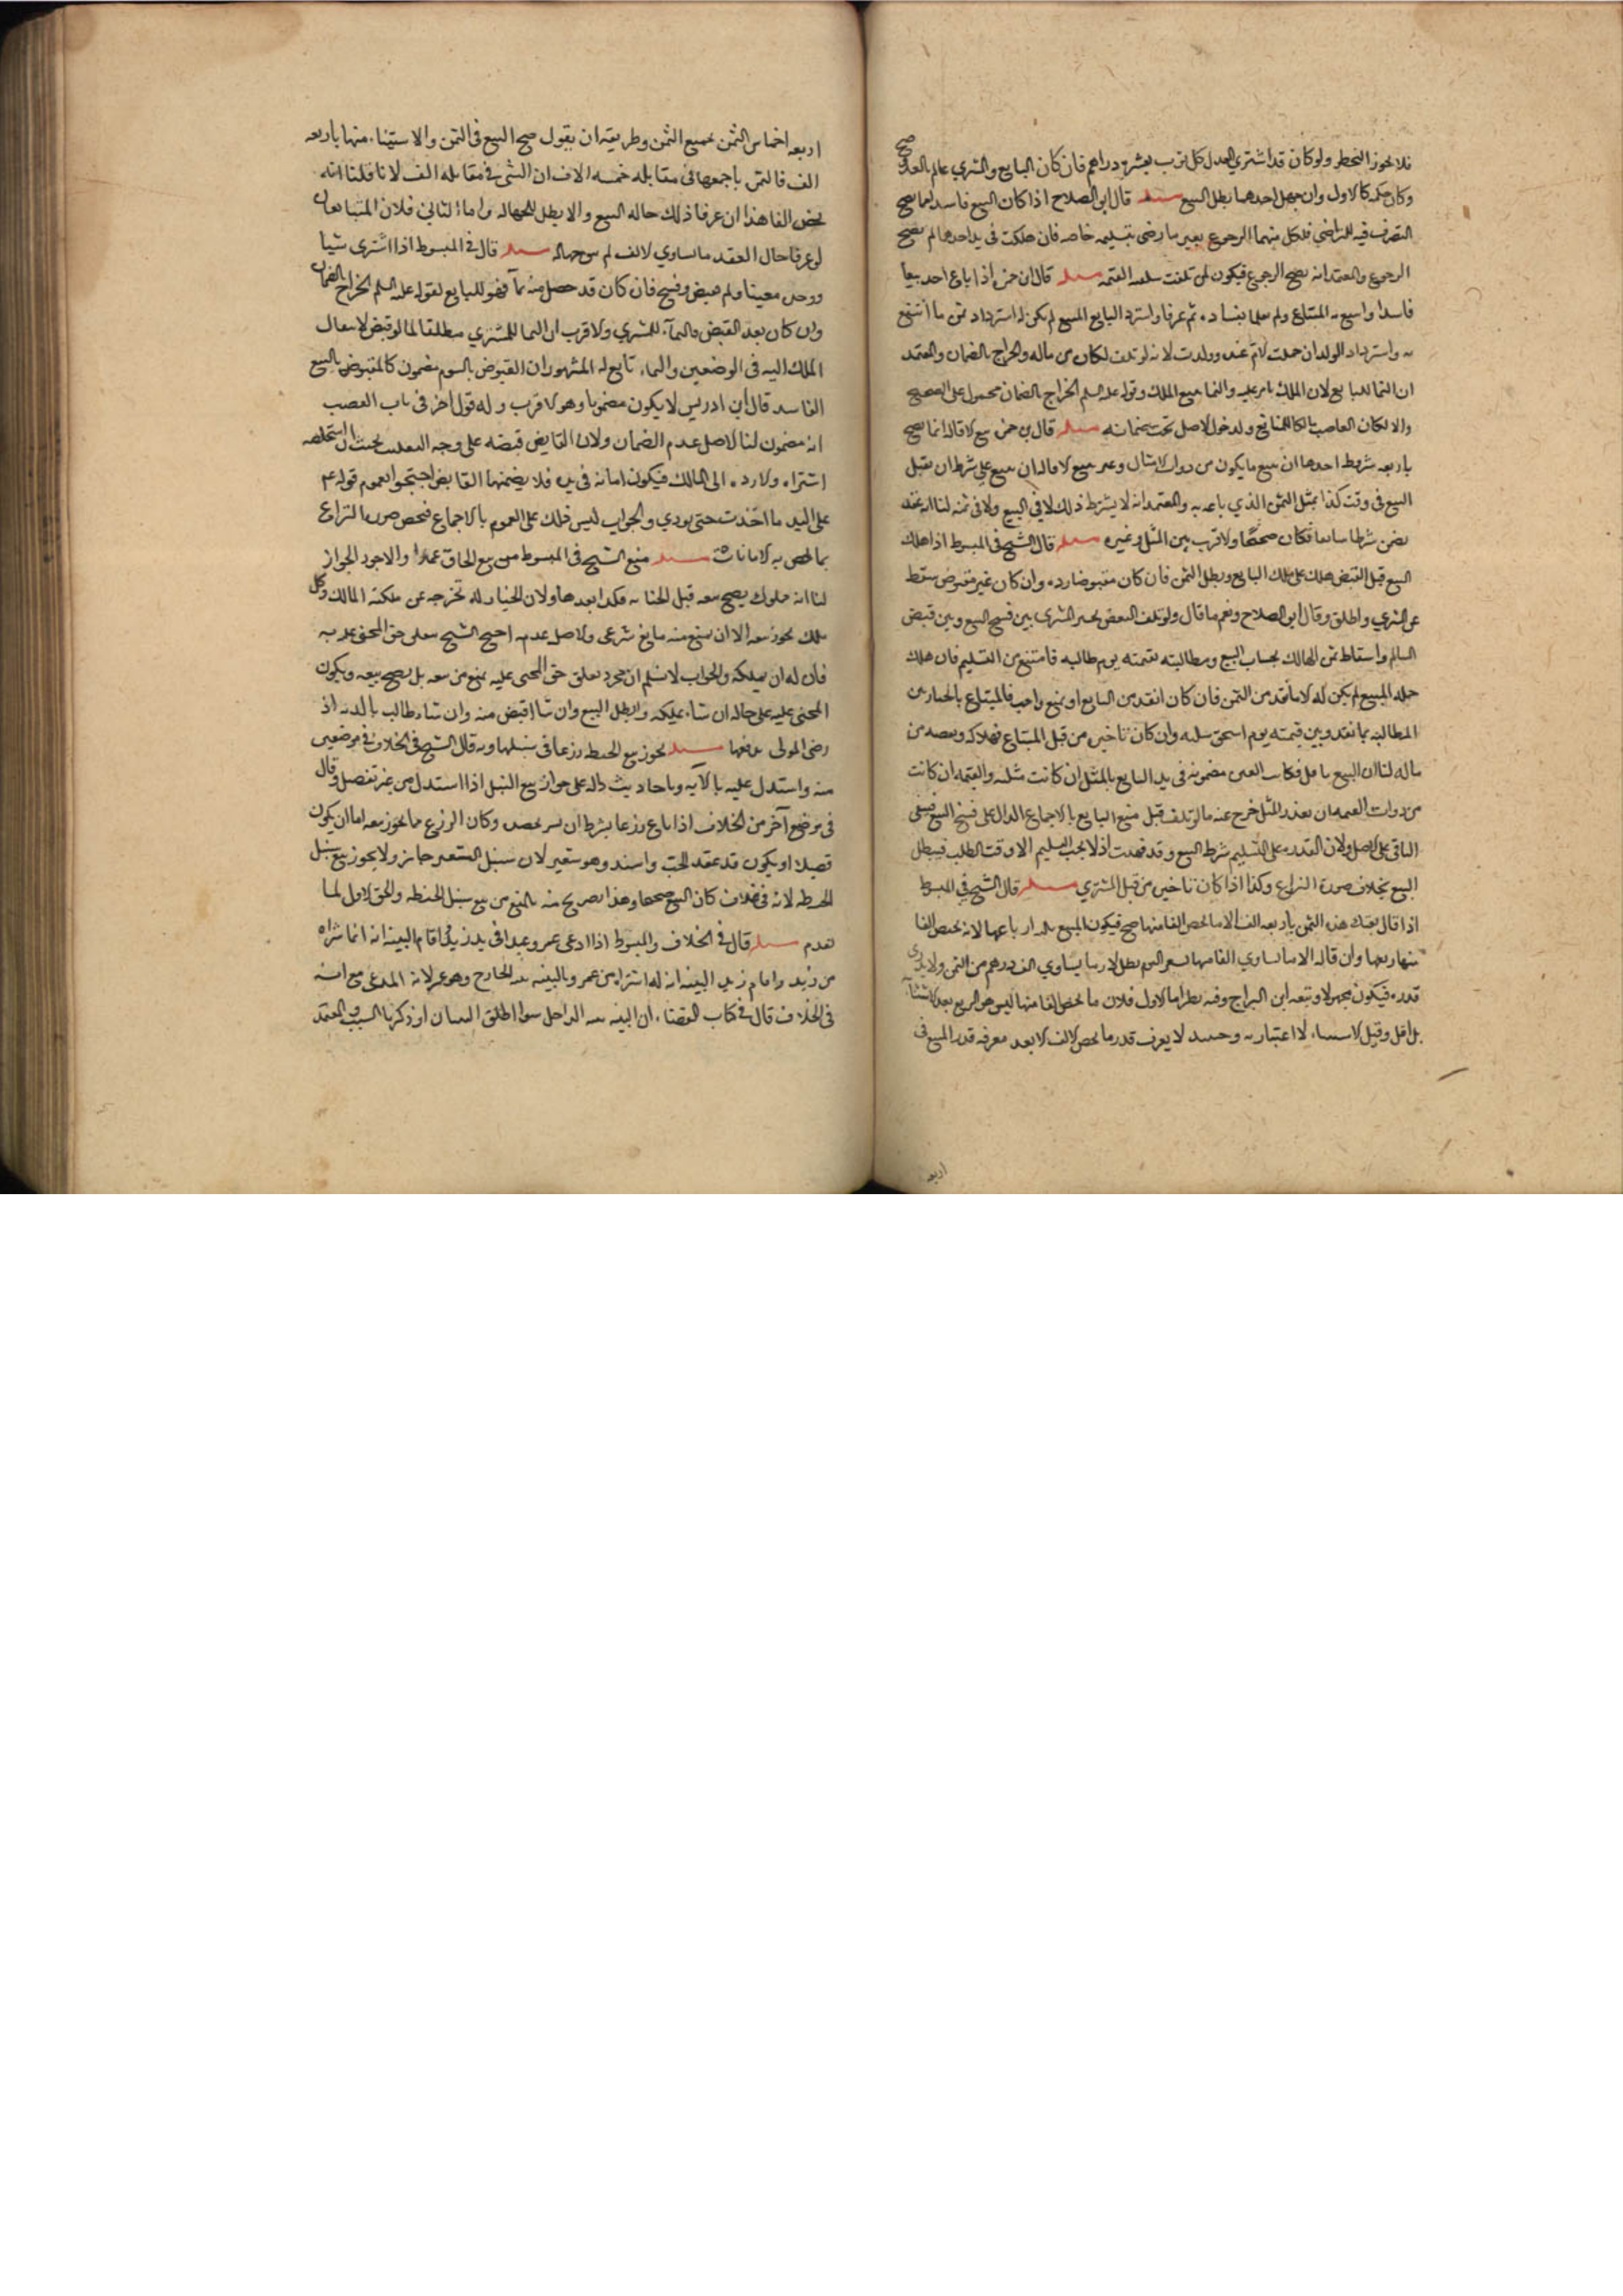 فلا يجوز النحطر ولو كان قد اشترى العدل كل ثوب بعشرة دراهم فان كان البايع والمشتري عالم بالعدد صح
وكان حكمه كالاول وان جهل احدهما بطل البيع مسله قال ابو الصلاح اذا كان البيع فاسدا مما يصح
التصرف فيه للتراضي فلكل منهما الرجوع بعير ما رضى بتسليمه خاصه فان هلكت في يد احدهما لم يصح
الرجوع والمعتمد انه يصح الرجوع فيكون لمن تلفت سلعته القيمه مسله قال ابن حمزه اذا باع احد بيعا
فاسدا وانتفع به المبتاع ولم يعلما بفساده ثم عرفا واسترد البايع المبيع لم يكن له استرداد ثمن ما انتفع
به واسترداد الولد ان حملت الام عنده وولدت لانه لو تلف لكان من ماله والخراج بالضمان والمعتمد
ان النما للبايع لان الملك باق عليه والنما يتبع الملك وقوله عليه السلم الخراج بالضمان محمول على الصحيح
والا لكان الغاصب مالكا للمنافع ولدخول الاصل تحت ضمانه مسله قال ابن حمزه بيع الاقاله انما يصح
باربعه شروط احدها ان يبيع ما يكون من ذوات الامثال وغير مبيع الاقاله ان يبيع على شرط ان يقيل
البيع في وقت كذا بمثل الثمن الذي باعه به والمعتمد انه لا يشترط ذلك لا في البيع ولا في ثمنه لنا انه عقد
تضمن شرطا سايغا فكان صحيحا ولا فرق بين المثل وغيره مسله قال الشيخ في المبسوط اذا هلك
المبيع قبل القبض هلك على ملك البايع وبطل الثمن فان كان مقبوضا رده وان كان غير مقبوض سقط
عن المشتري واطلق وقال ابو الصلاح ونعم ما قال ولو تلف البعض تخير المشترى بين فسخ البيع وبين قبض
السالم واسقاط ثمن الهالك بحساب المبيع ومطالبته بقيمته يوم طالبه فامتنع من التسليم فان هلك
جمله المبيع لم يكن له الا ما نقد من الثمن فان كان انقد من البايع او بمنع واجب فالمبتاع بالخيار بين
المطالبه بما نقد وبين قيمته يوم استحق تسليمه وان كان تاخيره من قبل المبتاع فهلاكه ونقصه من
ماله لنا ان المبيع ما قبل فكانت العين مضمونه في يد البايع بالمثل ان كانت مثليه والقيمه ان كانت
من ذوات القيمه او تعذر المثل خرج عنه ما لو تلف قبل منع البايع بالاجماع الدال على فسخ البيع فيبقى
الباقي على الاصل ولان القدره على التسليم شرط البيع وقد فقدت اذ لا يجب التسليم الا وقت الطلب فيبطل
البيع بخلاف صورة النزاع وكذا اذا كان تاخيره من قبل المشتري مسله قال الشيخ في المبسوط
اذا قال بعتك هذه الثمن باربعه الف الا ما يخص الفا منها صح فيكون المبيع ثلثه ارباعها لانه يخص الفا
منها ربعها وان قال الا ما يساوي الفا منها بسعر اليوم بطل لان ما يساوي الف درهم من الثمن ولا يدرى
قدره فيكون مجهولا وتبعه ابن البراج وفيه نظر اما الاول فلان ما يخص الفا منها ليس هو الربع بعد الاستثنا
بل اقل وقيل الاستثنا لا اعتبار به وحينئذ لا يعرف قدر ما يخص الالف الا بعد معرفه قدر المبيع في
اربعه
اربعه اخماس الثمن بجميع الثمن وطريقه ان يقول صح البيع في الثمن والاستثنا منها باربعه
الف فالثمن باجمعها في مقابله خمسه الاف ان الشى في مقابله الف لانا قلنا انه
يخص الفا هذا ان عرفا ذلك حاله البيع والا بطل للجهاله واما الثاني فلان المتبايعان
لو عرفا حال العقد ما يساوي الالف لم يوجب جهاله مسله قال في المبسوط اذا اشترى شيا
ووجد معيبا ولم يقبض وفسخ فان كان قد حصل منه نمآ فهو للبايع لقوله عليه السلم الخراج بالضمان
وان كان بعد القبض فالنمآء للمشتري والاقرب ان النما للمشتري مطلقا لما لو قبض لانتقال
الملك اليه في الموضعين والنماء تابع له المشهور ان المقبوض بالسوم مضمون كالمقبوض بالبيع
الفاسد قال ابن ادريس لا يكون مضمونا وهو الاقرب وله قول اخر في باب الغصب
انه مضمون لنا الاصل عدم الضمان ولان القابض قبضه على وجه التغلب بحيث ان استصلحه
اشتراه والا رده الى المالك فيكون امانه في يده فلا يضمنها القابض احتجوا بعموم قوله عم
على اليد ما اخذت حتى يودي والجواب ليس ذلك على العموم بالاجماع فيخص صورة النزاع
بما يخص به الامانات مسله منع الشيخ في المبسوط من بيع الجاني عمدا والاجود الجواز
لنا انه مملوك يصح بيعه قبل الجنايه فكذا بعدها ولان الجنايه لا تخرجه عن ملكيه المالك وكل
ملك يجوز بيعه الا ان يمنع منه مانع شرعى والاصل عدمه احتج الشيخ بتعلق حق المجنى عليه به
فان له ان يملكه والجواب لا نسلم ان مجرد تعلق حق المجنى عليه يمنع من بيعه بل يصح بيعه ويكون
المجنى عليه على حاله ان شاء يملكه وابطل البيع وان شا اقبض منه وان شا طالب بالديه اذ
رضى المولى بدفعها مسله يجوز بيع الحنطه زرعا في سنبلها وبه قال الشيخ في الخلاف في موضعين
منه واستدل عليه بالايه وباحاديث داله على جواز بيع السنبل اذا استدل من غير تفصيل وقال
في موضع آخر من الخلاف اذا باع زرعا بشرط ان يسر بحصد وكان الزرع مما يجوز بيعه اما ان يكون
قصيلا او يكون قد عقد الحب واشتد وهو شعير لان سنبل الشعير جايز ولا يجوز بيع سنبل
الحنطه لانه في غلاف كان البيع صحيحا وهذا تصريح منه بالمنع من بيع سنبل الحنطه والحق الاول لما
تقدم مسله قال في الخلاف والمبسوط اذا ادعى عمرو عبدا في يد زيد واقام البينه انه انما شراه
من زيد واقام زيد البينه انه له اشتراه من عمر وبالبينه بينه الخارج وهو عمر لانه المدعى مع انه
في الخلاف قال في كتاب القضاء ان البينه بينه الداخل سوا اطلق البينتان او ذكرنا السبب والمعتمد